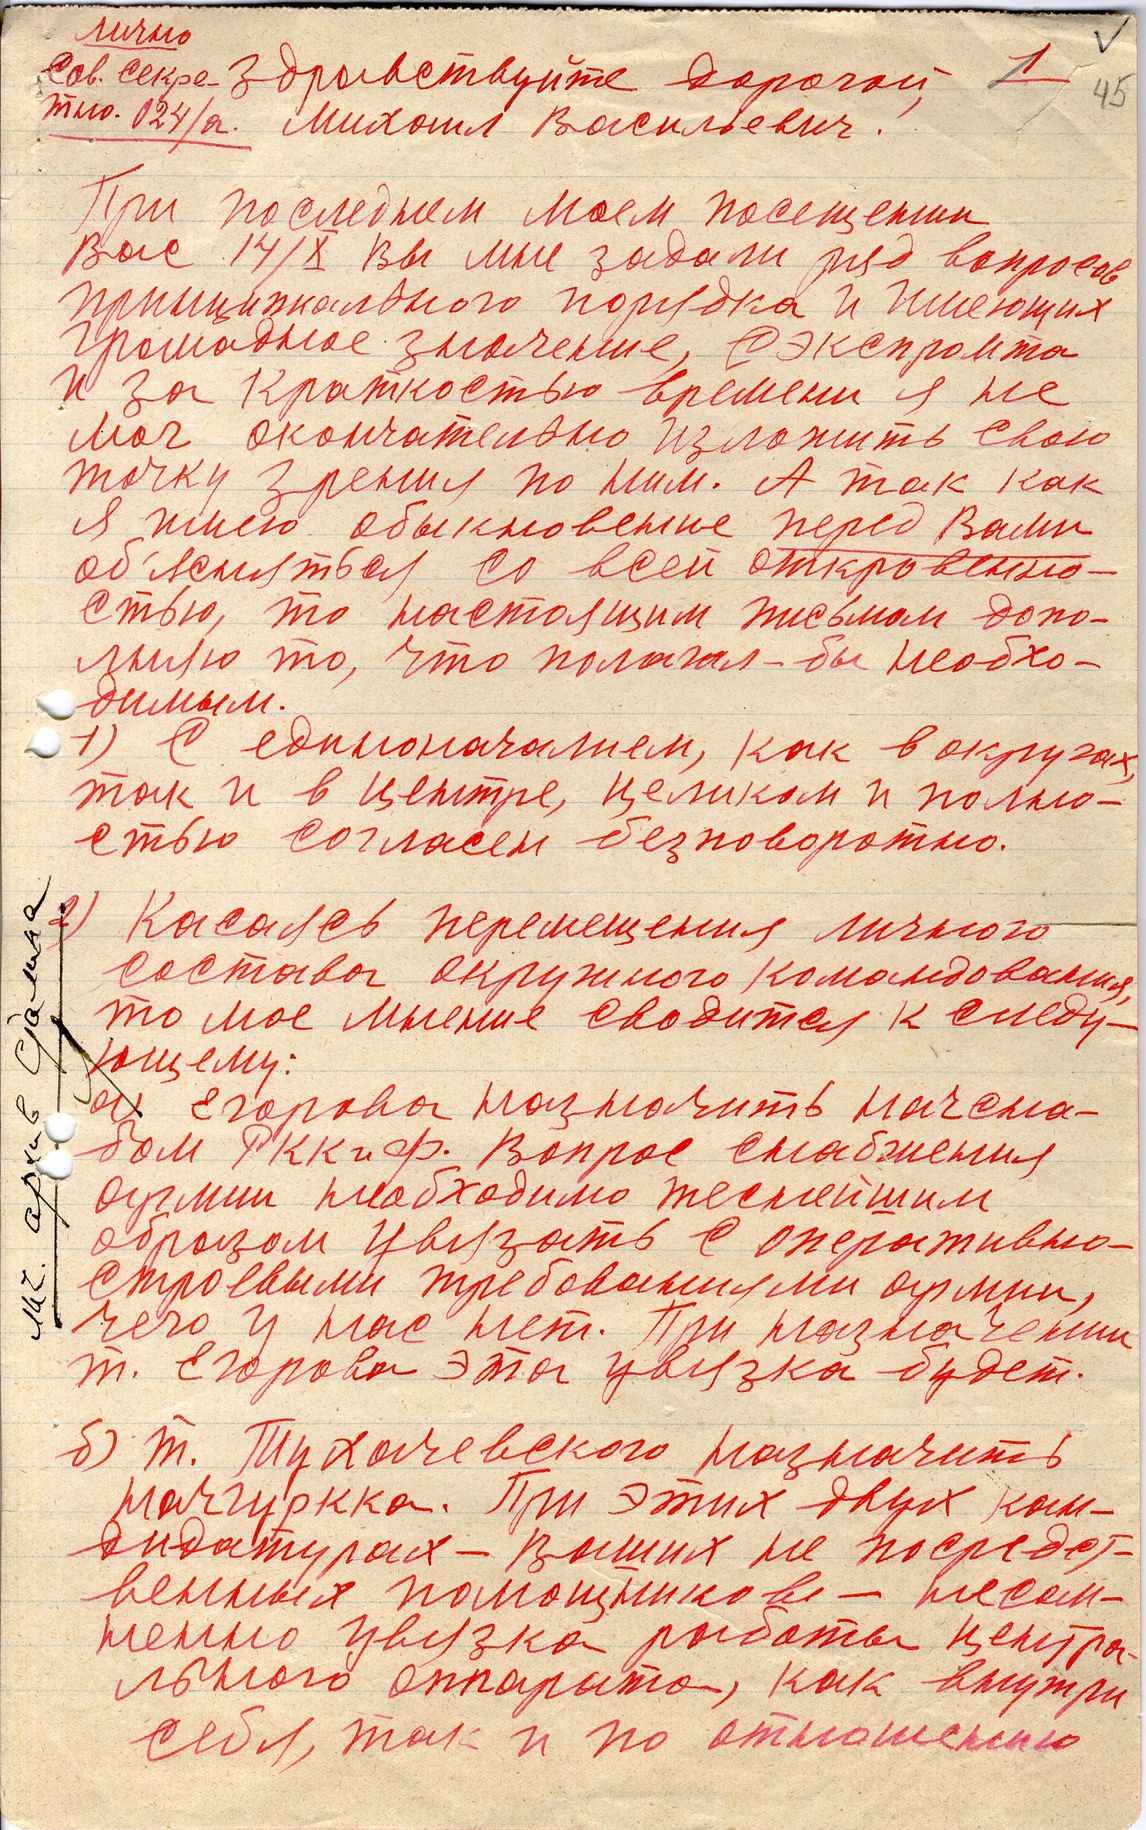 лично
Сов. секре-
тно. 024/а.
1
45
Здравствуйте дорогой,
Михаил Васильевич!
При последнем моем посещении
Вас 14/X Вы мне задали ряд вопросов
принципиального порядка и имеющих
громадное значение, С экспромта
и за краткостью времени я не
мог окончательно изложить свою
точку зрения по ним. А так как
я имею обыкновение перед Вами
об'ясняться со всей откровенно-
стью, то настоящим письмом допо-
лняю то, что полагал-бы необхо-
димым.
1) С единоначалием, как в округах,
так и в центре, целиком и полно-
стью согласен безповоротно.
2) Касаясь перемещения личного
состава окружного командования,
то мое мнение сводится к следу-
ющему:
а) Егорова назначить начсна-
бом РККиФ. Вопрос снабжения
армии необходимо теснейшим
образом увязать с оперативно-
строевыми требованиями армии,
чего у нас нет. При назначении
т. Егорова эта увязка будет.
б) т. Тухачевского назначить
начгуркка. При этих двух кан-
дидатурах - Ваших не посредст-
венных помощников - несом-
ненно увязка работы центра-
льного аппарата, как внутри
себя, так и по отношению
лич. архив Сталина